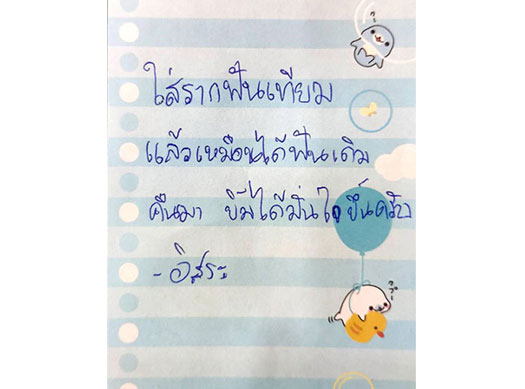 ใส่รากฟันเทียม
แล้วเหมือนได้ฟันเดิม
คืนมา ยิ้มได้มั่นใจขึ้นครับ
- อิสระ